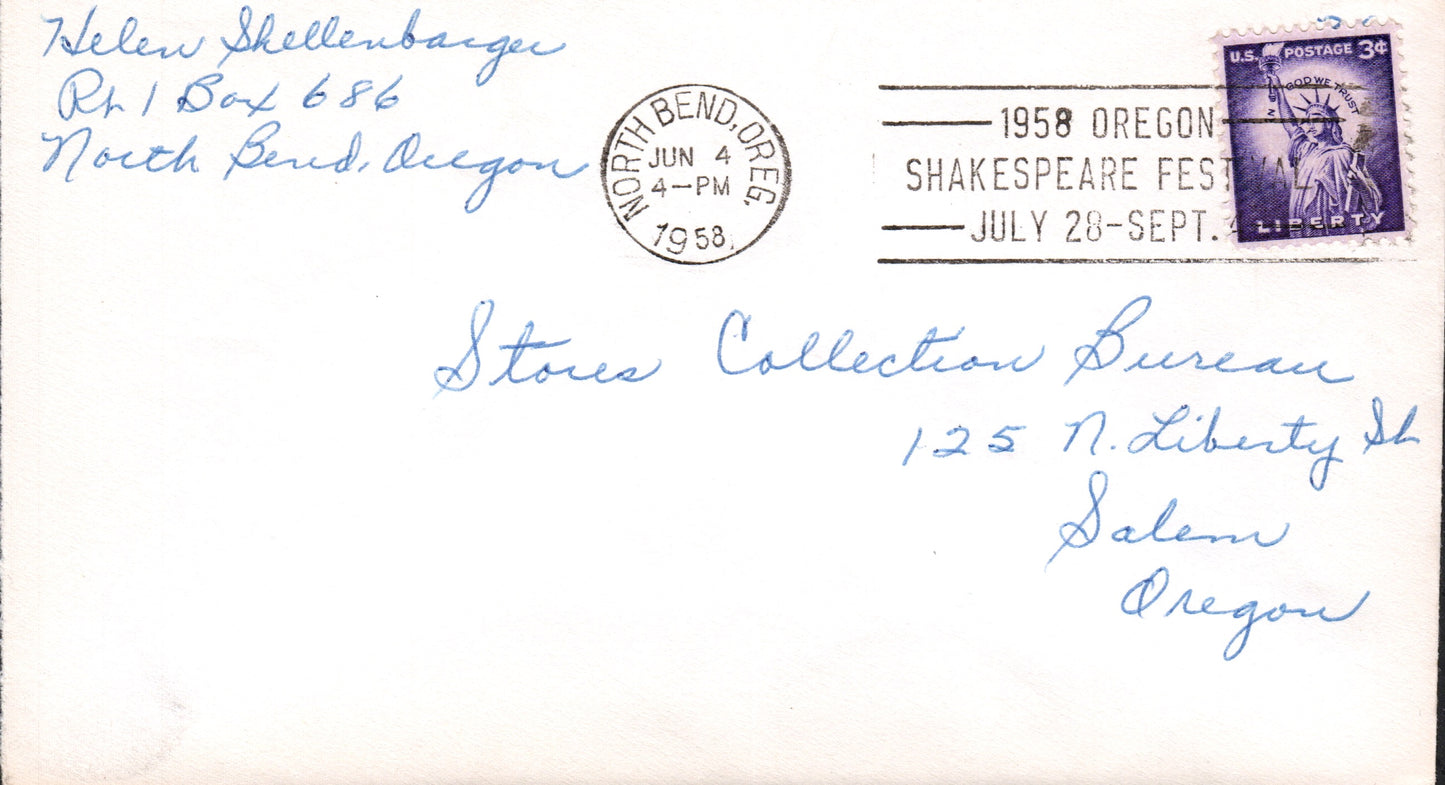 Helen Shellenbarger
Rt 1 Box 686
North Bend, Oregon
NORTH BEND, OREG.
JUN 4
4-PM
1958
1958 OREGON
SHAKESPEARE FESTIVAL
JULY 28-SEPT.
U.S. POSTAGE 3¢
IN GOD WE TRUST
LIBERTY
Stores Collection Bureau
125 N. Liberty St
Salem
Oregon